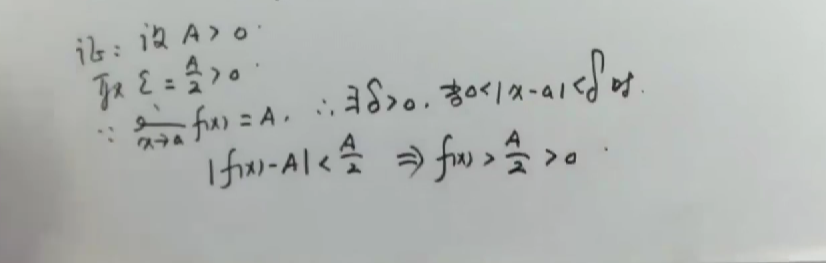 证：设 A > 0.
取 ε = A/2 > 0.
∵ lim x→a f(x) = A. ∴ ∃δ>0. 当0<|x-a|<δ 时.
|f(x)-A| < A/2 ⇒ f(x) > A/2 > 0.